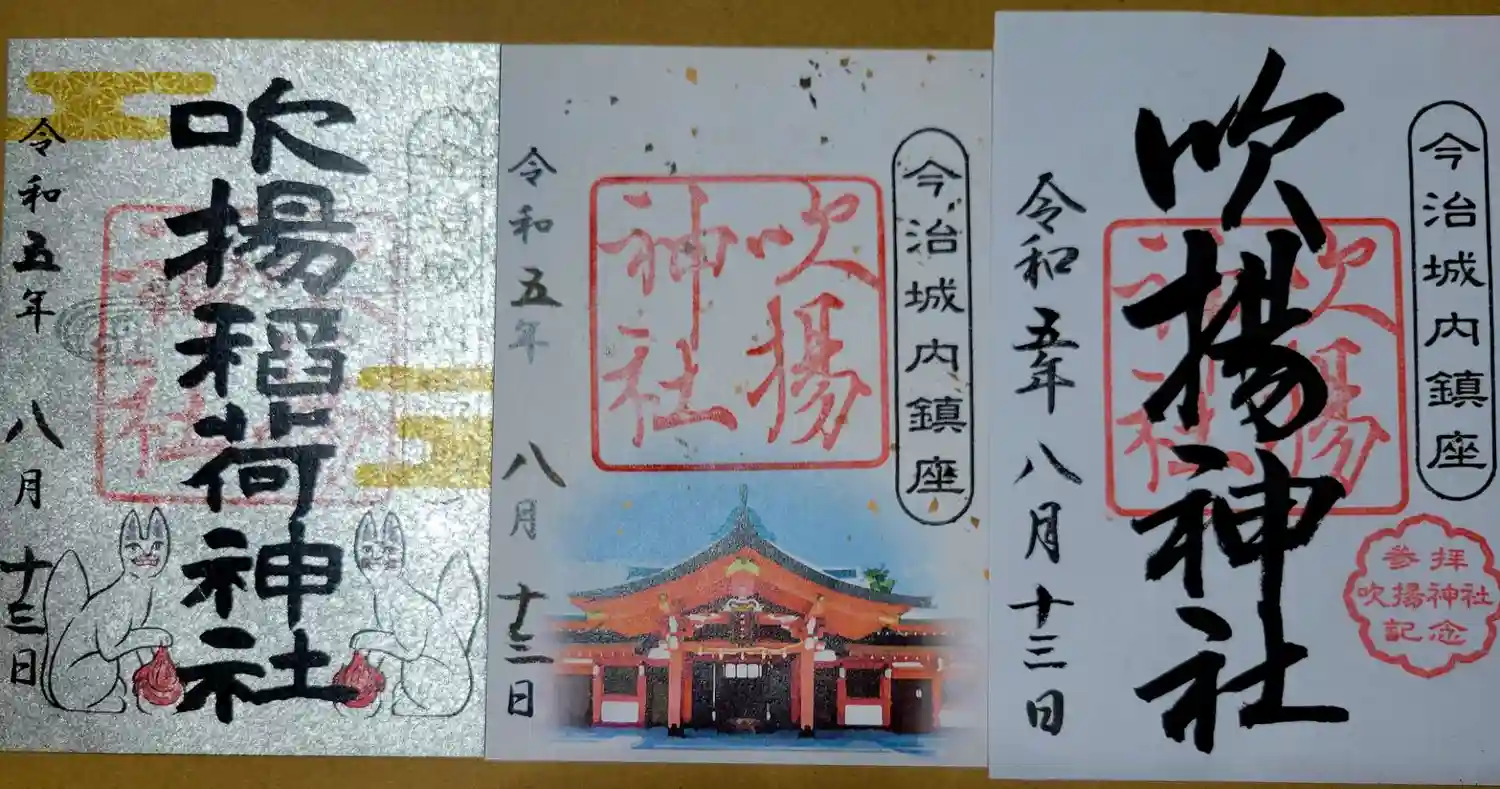 吹揚稲荷神社
令和五年 八月 十三日
今治城内鎮座
吹揚
神社
令和五年 八月 十三日
今治城内鎮座
吹揚神社
吹揚
神社
令和五年 八月十三日
参拝
吹揚神社
記念